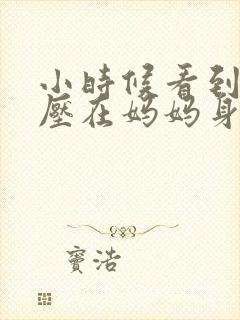 小時候看到
壓在媽媽身
竇浩